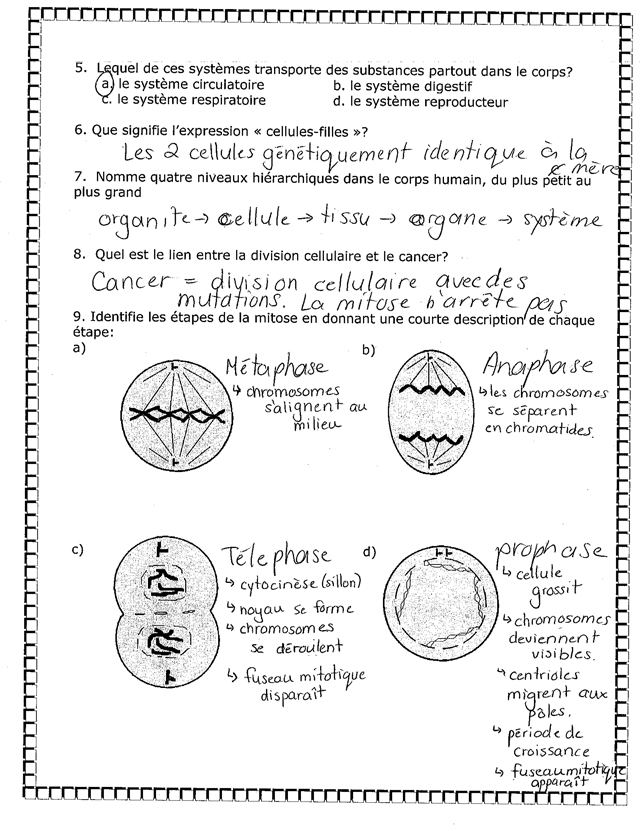 5. Lequel de ces systèmes transporte des substances partout dans le corps?
a. le système circulatoire b. le système digestif
c. le système respiratoire d. le système reproducteur
6. Que signifie l'expression « cellules-filles »?
Les 2 cellules génétiquement identique à la
mère
7. Nomme quatre niveaux hiérarchiques dans le corps humain, du plus petit au
plus grand
organite → cellule → tissu → organe → système
8. Quel est le lien entre la division cellulaire et le cancer?
Cancer = division cellulaire avec des
mutations. La mitose n'arrête pas
9. Identifie les étapes de la mitose en donnant une courte description de chaque
étape:
a)
Métaphase
↳ chromosomes
s'alignent au
milieu
b)
Anaphase
↳ les chromosomes
se séparent
en chromatides.
c)
Télephase
↳ cytocinèse (sillon)
↳ noyau se forme
↳ chromosomes
se déroulent
↳ fuseau mitotique
disparaît
d)
prophase
↳ cellule
grossit
↳ chromosomes
deviennent
visibles.
↳ centrioles
migrent aux
pôles.
↳ période de
croissance
↳ fuseau mitotique
apparaît